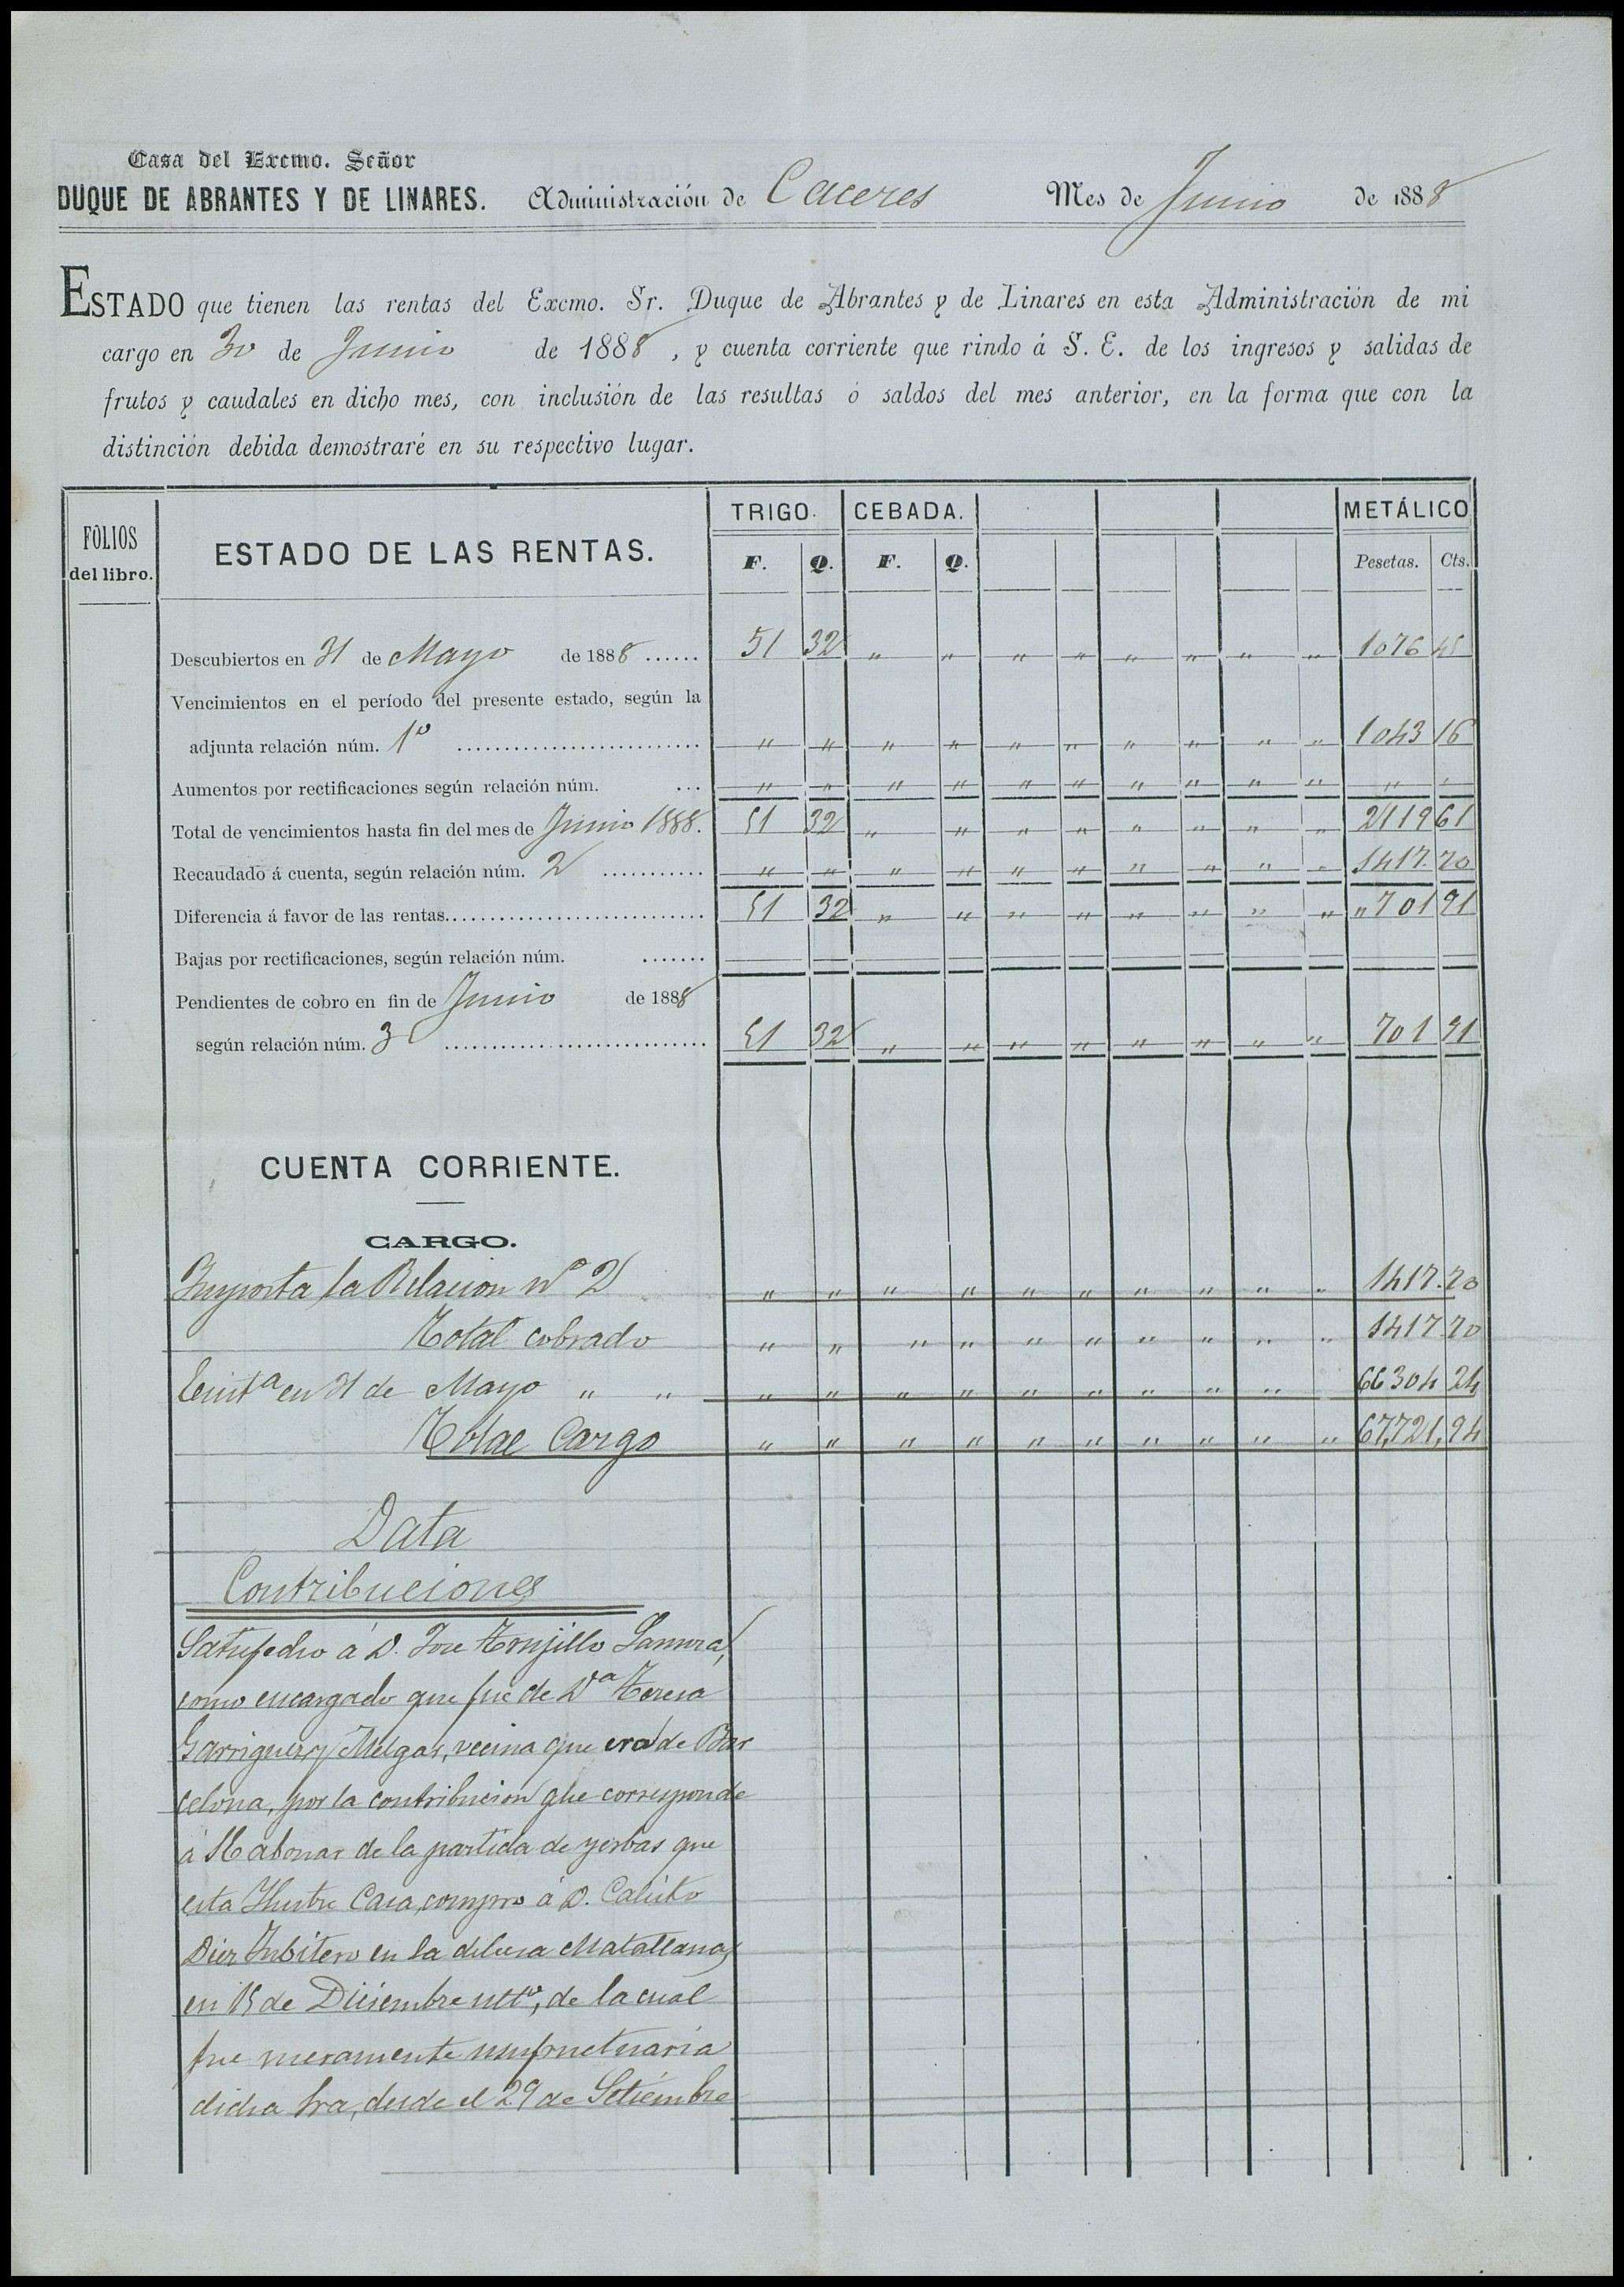 Casa del Excmo. Señor
DUQUE DE ABRANTES Y DE LINARES. Administración de Caceres Mes de Junio de 1888
ESTADO que tienen las rentas del Excmo. Sr. Duque de Abrantes y de Linares en esta Administración de mi
cargo en 30 de Junio de 1888, y cuenta corriente que rindo á S. E. de los ingresos y salidas de
frutos y caudales en dicho mes, con inclusión de las resultas ó saldos del mes anterior, en la forma que con la
distinción debida demostraré en su respectivo lugar.
FOLIOS del libro. ESTADO DE LAS RENTAS. TRIGO. CEBADA. METÁLICO
F. Q. F. Q. Pesetas. Cts.
Descubiertos en 31 de Mayo de 1888 ...... 51 32 " " " " " " " " 1076 45
Vencimientos en el período del presente estado, según la
adjunta relación núm. 1º .......................... " " " " " " " " " " 1043 16
Aumentos por rectificaciones según relación núm. ... " " " " " " " " " " " "
Total de vencimientos hasta fin del mes de Junio 1888. 51 32 " " " " " " " " 2119 61
Recaudado á cuenta, según relación núm. 2 ........... " " " " " " " " " " 1417 70
Diferencia á favor de las rentas............................ 51 32 " " " " " " " " " 701 91
Bajas por rectificaciones, según relación núm. .......
Pendientes de cobro en fin de Junio de 1888
según relación núm. 3 ............................ 51 32 " " " " " " " " 701 91
CUENTA CORRIENTE.
CARGO.
Importa la Relacion nº 2 " " " " " " " " " " 1417.70
Total cobrado " " " " " " " " " " 1417.70
en 31 de Mayo " " " " " " " " " " " 66304 24
Total Cargo " " " " " " " " " " 67,721,94
Data
Contribuciones
Satisfecho á D. Jose Trujillo
como encargado que fue de Dª Teresa
Garriguez y Melgar, vecina que era de Bar
celona, por la contribucion que corresponde
á abonar de la partida de yerbas que
esta Ilustre Casa, compro á D. Calisto
Diez en la dehesa Matallana,
en 15 de Diciembre utto, de la cual
fue meramente usufructuaria
dicha Sra, desde el 29 de Setiembre